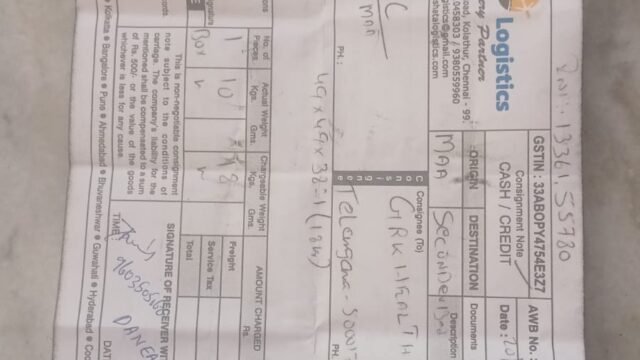 Logistics
ery Partner
oad, Kolathur, Chennai - 99.
0458303 / 9380559960
gistics@gmail.com
shatalogistics.com
GSTIN: 33ABOPY4754E3Z7
AWB No.:
Consignment Note
CASH / CREDIT
Date :
ORIGIN
DESTINATION
Documents
MAA
Description
C
MAA
Consignee (To)
GRK HEALTH
Telangana - 5000
PH.:
PH
49x49x33=1(18k)
No. of Pieces
Actual Weight
Kgs. Gms.
Chargeable Weight
Kgs. Gms.
AMOUNT CHARGED
Rs.
1
10
Box
Freight
Service Tax
Total
This is non-negotiable consignment
note subject to the conditions of
carriage. The company's liability for the
mentioned shall be compensated to a sum
of Rs. 500/- or the value of the goods
whichever is less for any cause.
SIGNATURE OF RECEIVER WIT
TIME:
DAT
Kolkata ● Bangalore ● Pune ● Ahmedabad ● Bhuvaneshwar ● Guwahati ● Hyderabad ● Coc